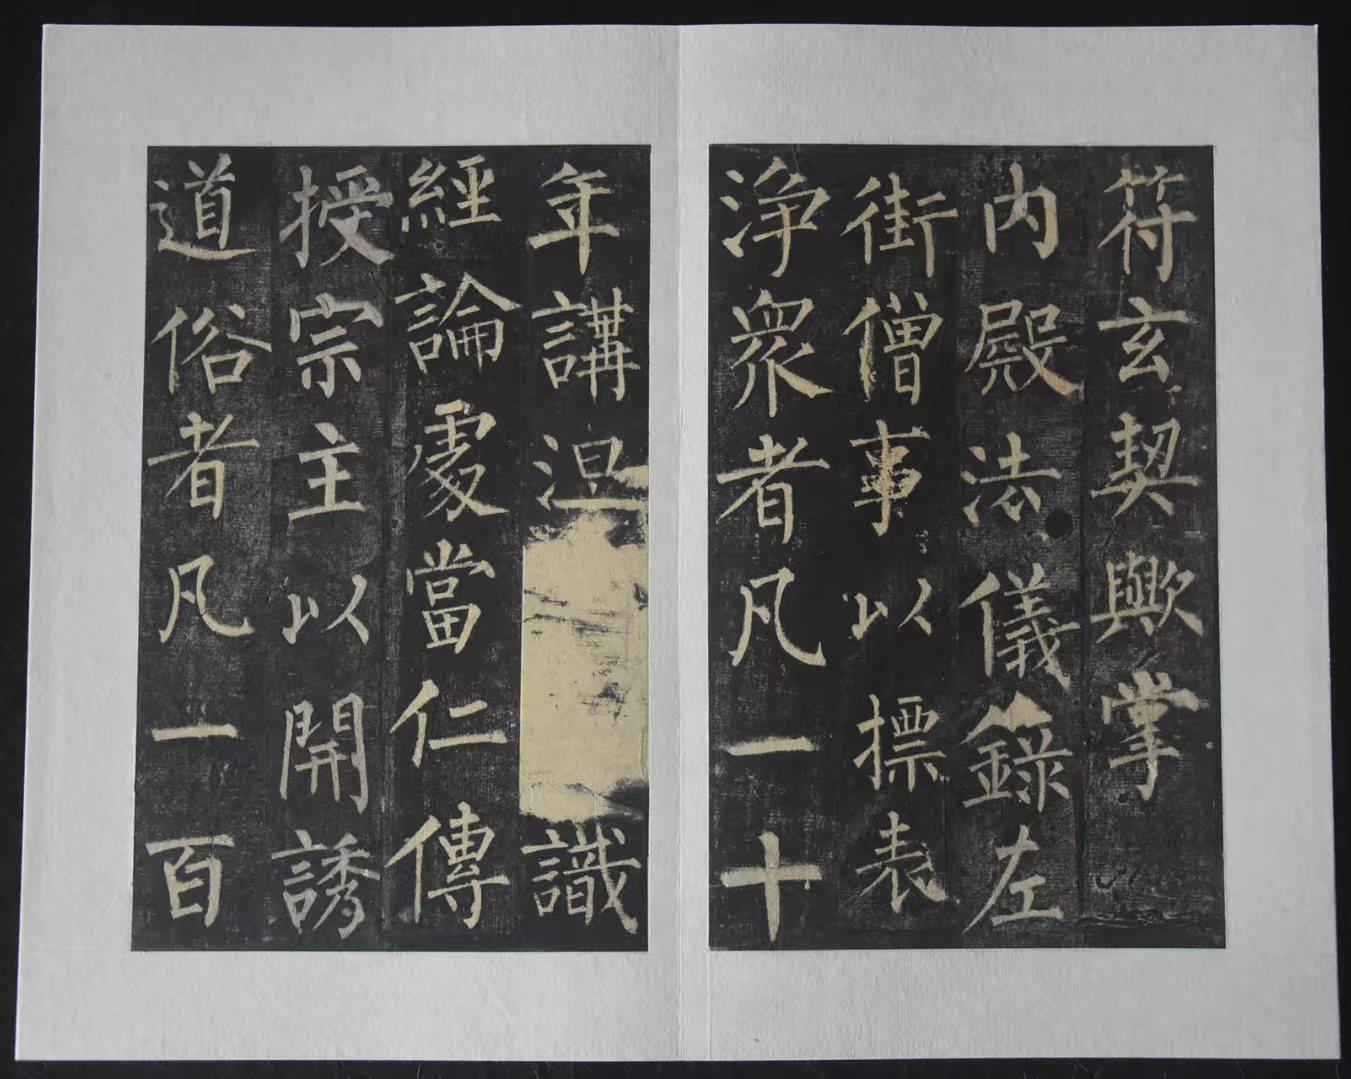 符玄契歟掌
內殿法儀錄左
街僧事以摽表
淨衆者凡一十
年講涅 識
經論處當仁傳
授宗主以開誘
道俗者凡一百